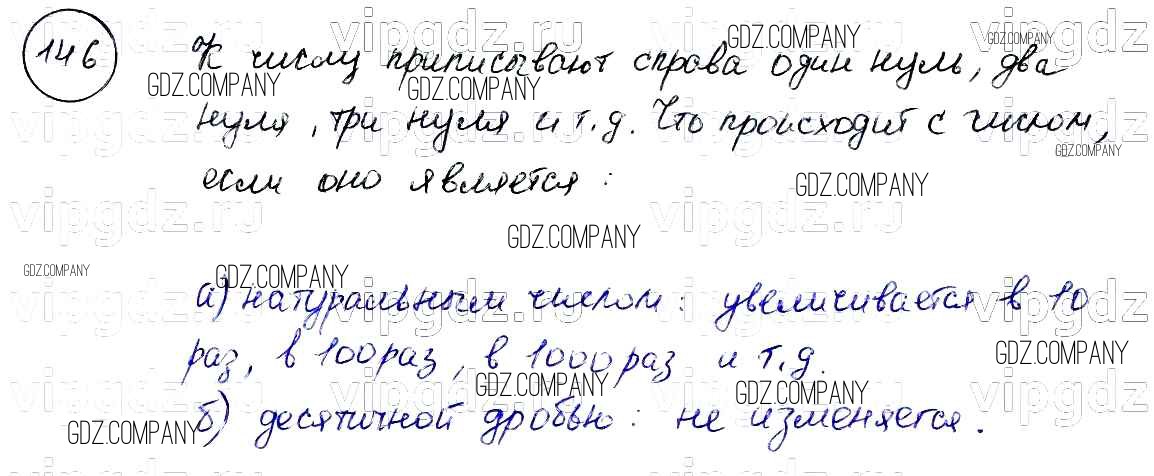 146 К числу приписывают справа один нуль, два
нуля, три нуля и т.д. Что происходит с числом,
если оно является:
а) натуральным числом: увеличивается в 10
раз, в 100 раз, в 1000 раз и т.д.
б) десятичной дробью: не изменяется.
vipgdz.ru
GDZ.COMPANY